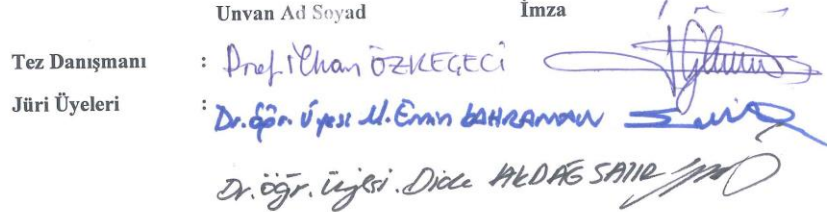 Unvan Ad Soyad İmza
Tez Danışmanı : Prof. İlhan ÖZKEÇECİ
Jüri Üyeleri : Dr. Öğr. Üyesi M. Emin KAHRAMAN
Dr. öğr. üyesi. Dicle AKDAĞ SATIR